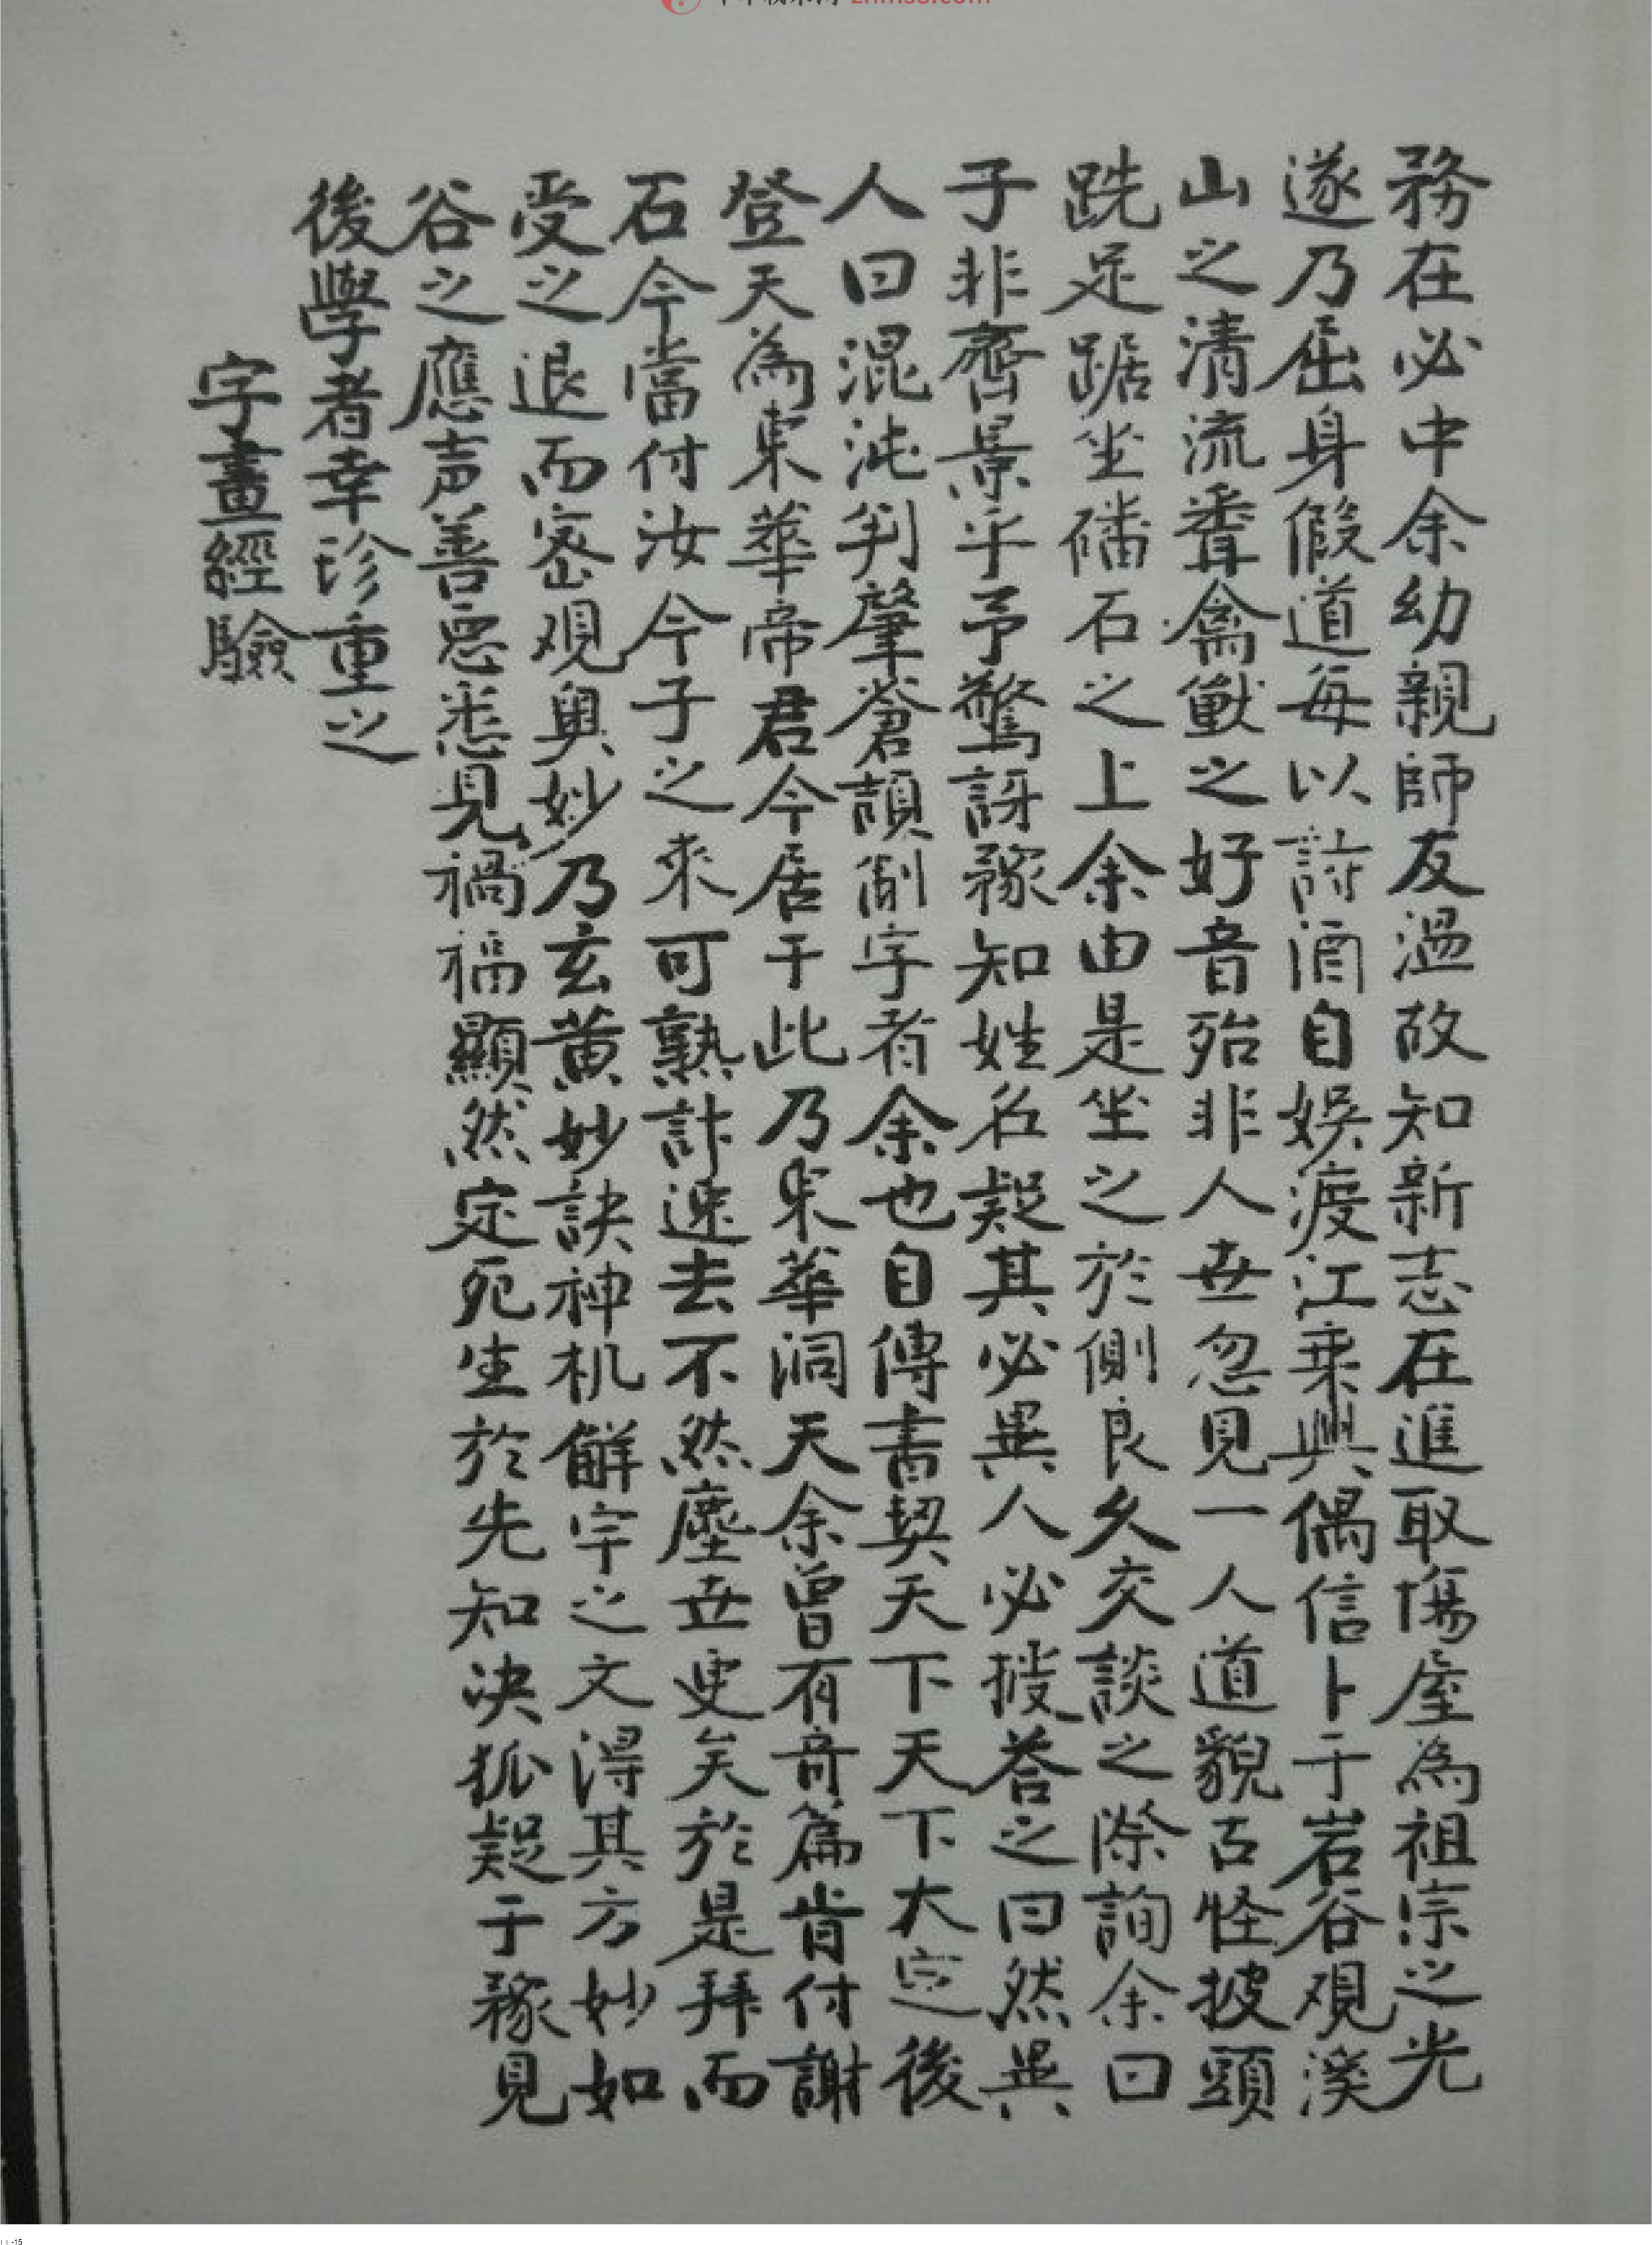 znms8.com
務在必中余幼親師友溫故知新志在進取傷屋為祖宗之光
遂乃屈身假道每以詩酒自娛渡江乘興偶信卜于岩谷观溪
山之清流聽禽獸之好音殆非人世忽見一人道貌古怪披頭
跣足踞坐磻石之上余由是坐之於側良久交談之際詢余曰
子非齊景乎予驚訝豫知姓名疑其必異人必搜答之曰然異
人曰混沌判肇蒼頡制字者余也自傳書契天下天下大定後
登天為東華帝君今居于此乃東華洞天余曾有奇篇肯付謝
石今當付汝今子之來可熟計速去不然塵世更矣於是拜而
受之退而密观奥妙乃玄黄妙訣神机觧字之文得其方妙如
谷之應声善惡悉見禍福顯然定死生於先知决狐疑于豫見
後學者幸珍重之
字畫經驗